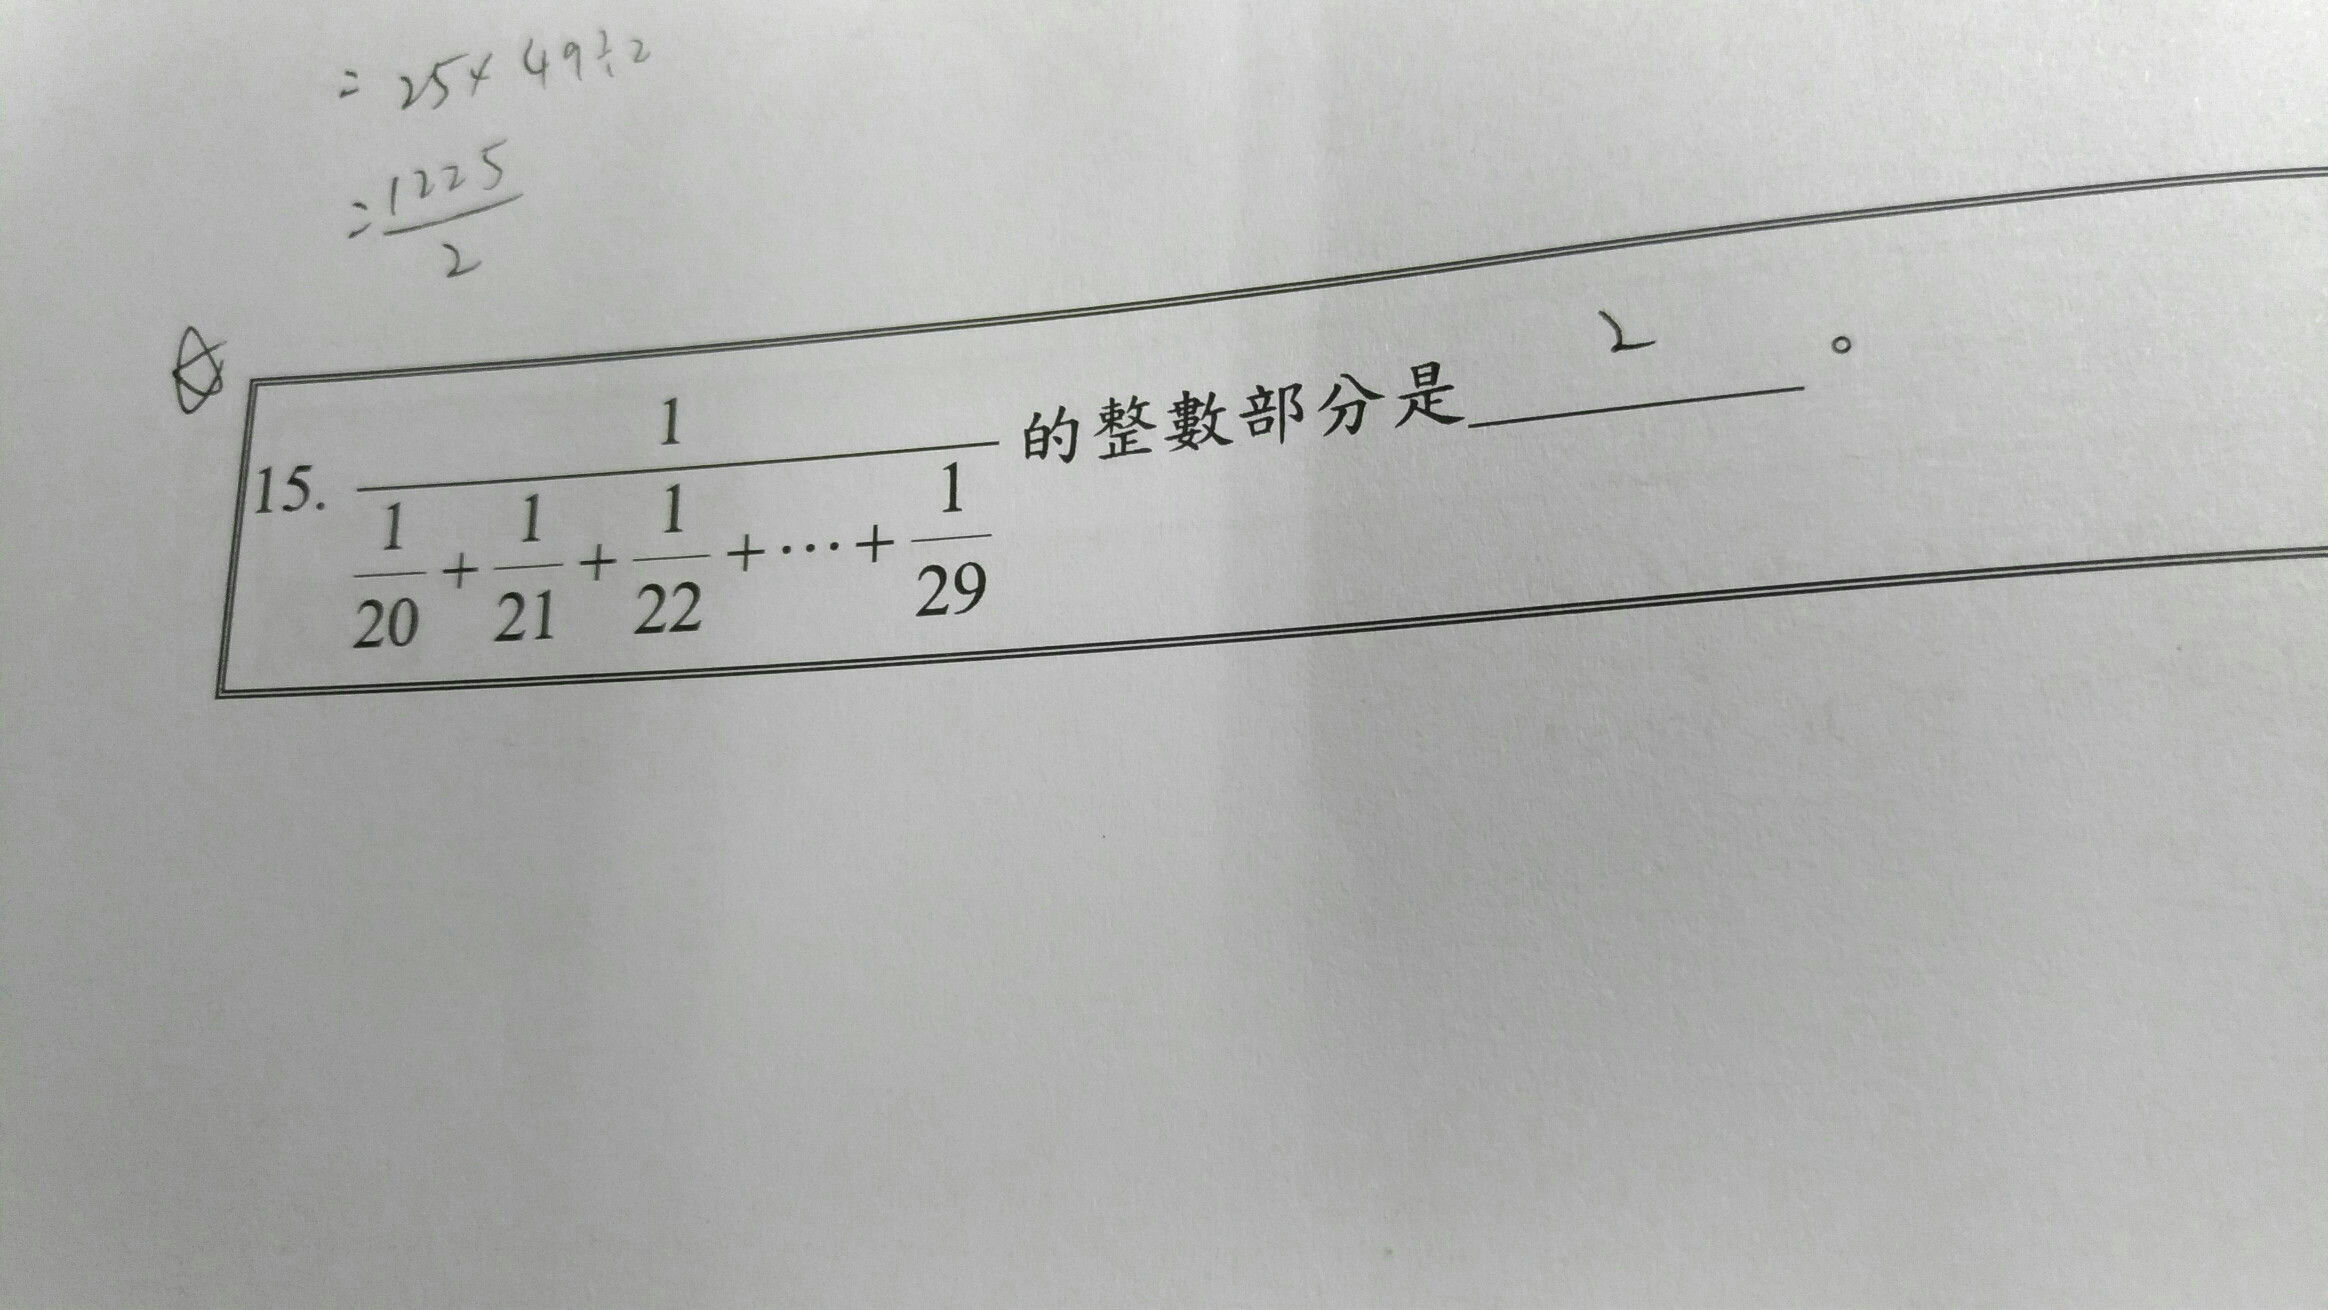 = 25 × 49 ÷ 2
= 1225/2
15. 1/(1/20 + 1/21 + 1/22 + ⋯ + 1/29) 的整數部分是 2 。